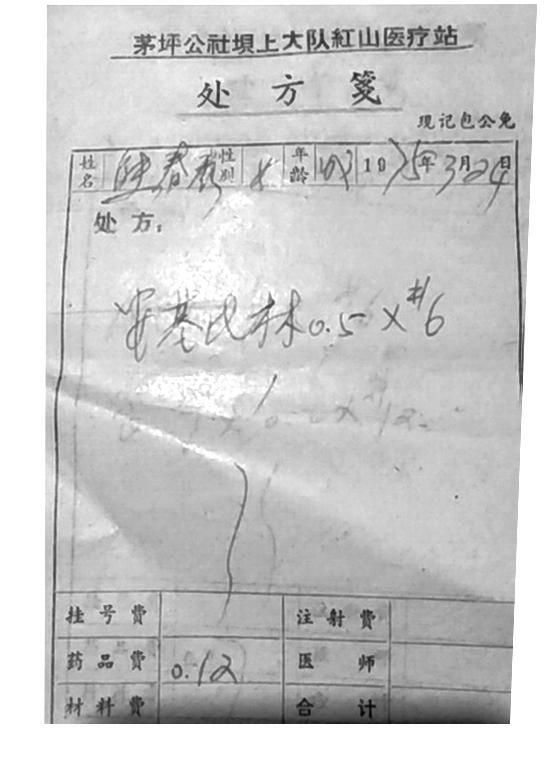 茅坪公社坝上大队紅山医疗站
处 方 笺
现记包公免
姓名 春 性别 女 年龄 1975年3月24日
处方：
安基比林0.5×#6
挂号费 注射费
药品费 0.12 医 师
材料费 合 计